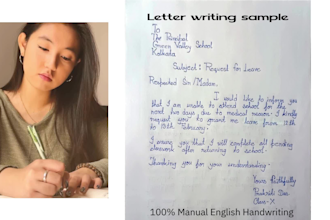 Letter writing sample
To
The Principal
Green Valley School
Kolkata
Subject: Request for Leave
Respected Sir/Madam,
I would like to inform you
that I am unable to attend school for the
next two days due to medical reasons. I kindly
request you to grant me leave from 12th
to 13th February.
I assure you that I will complete all pending
classwork after returning to school.
Thanking you for your understanding.
Yours Faithfully
Class-X
100% Manual English Handwriting